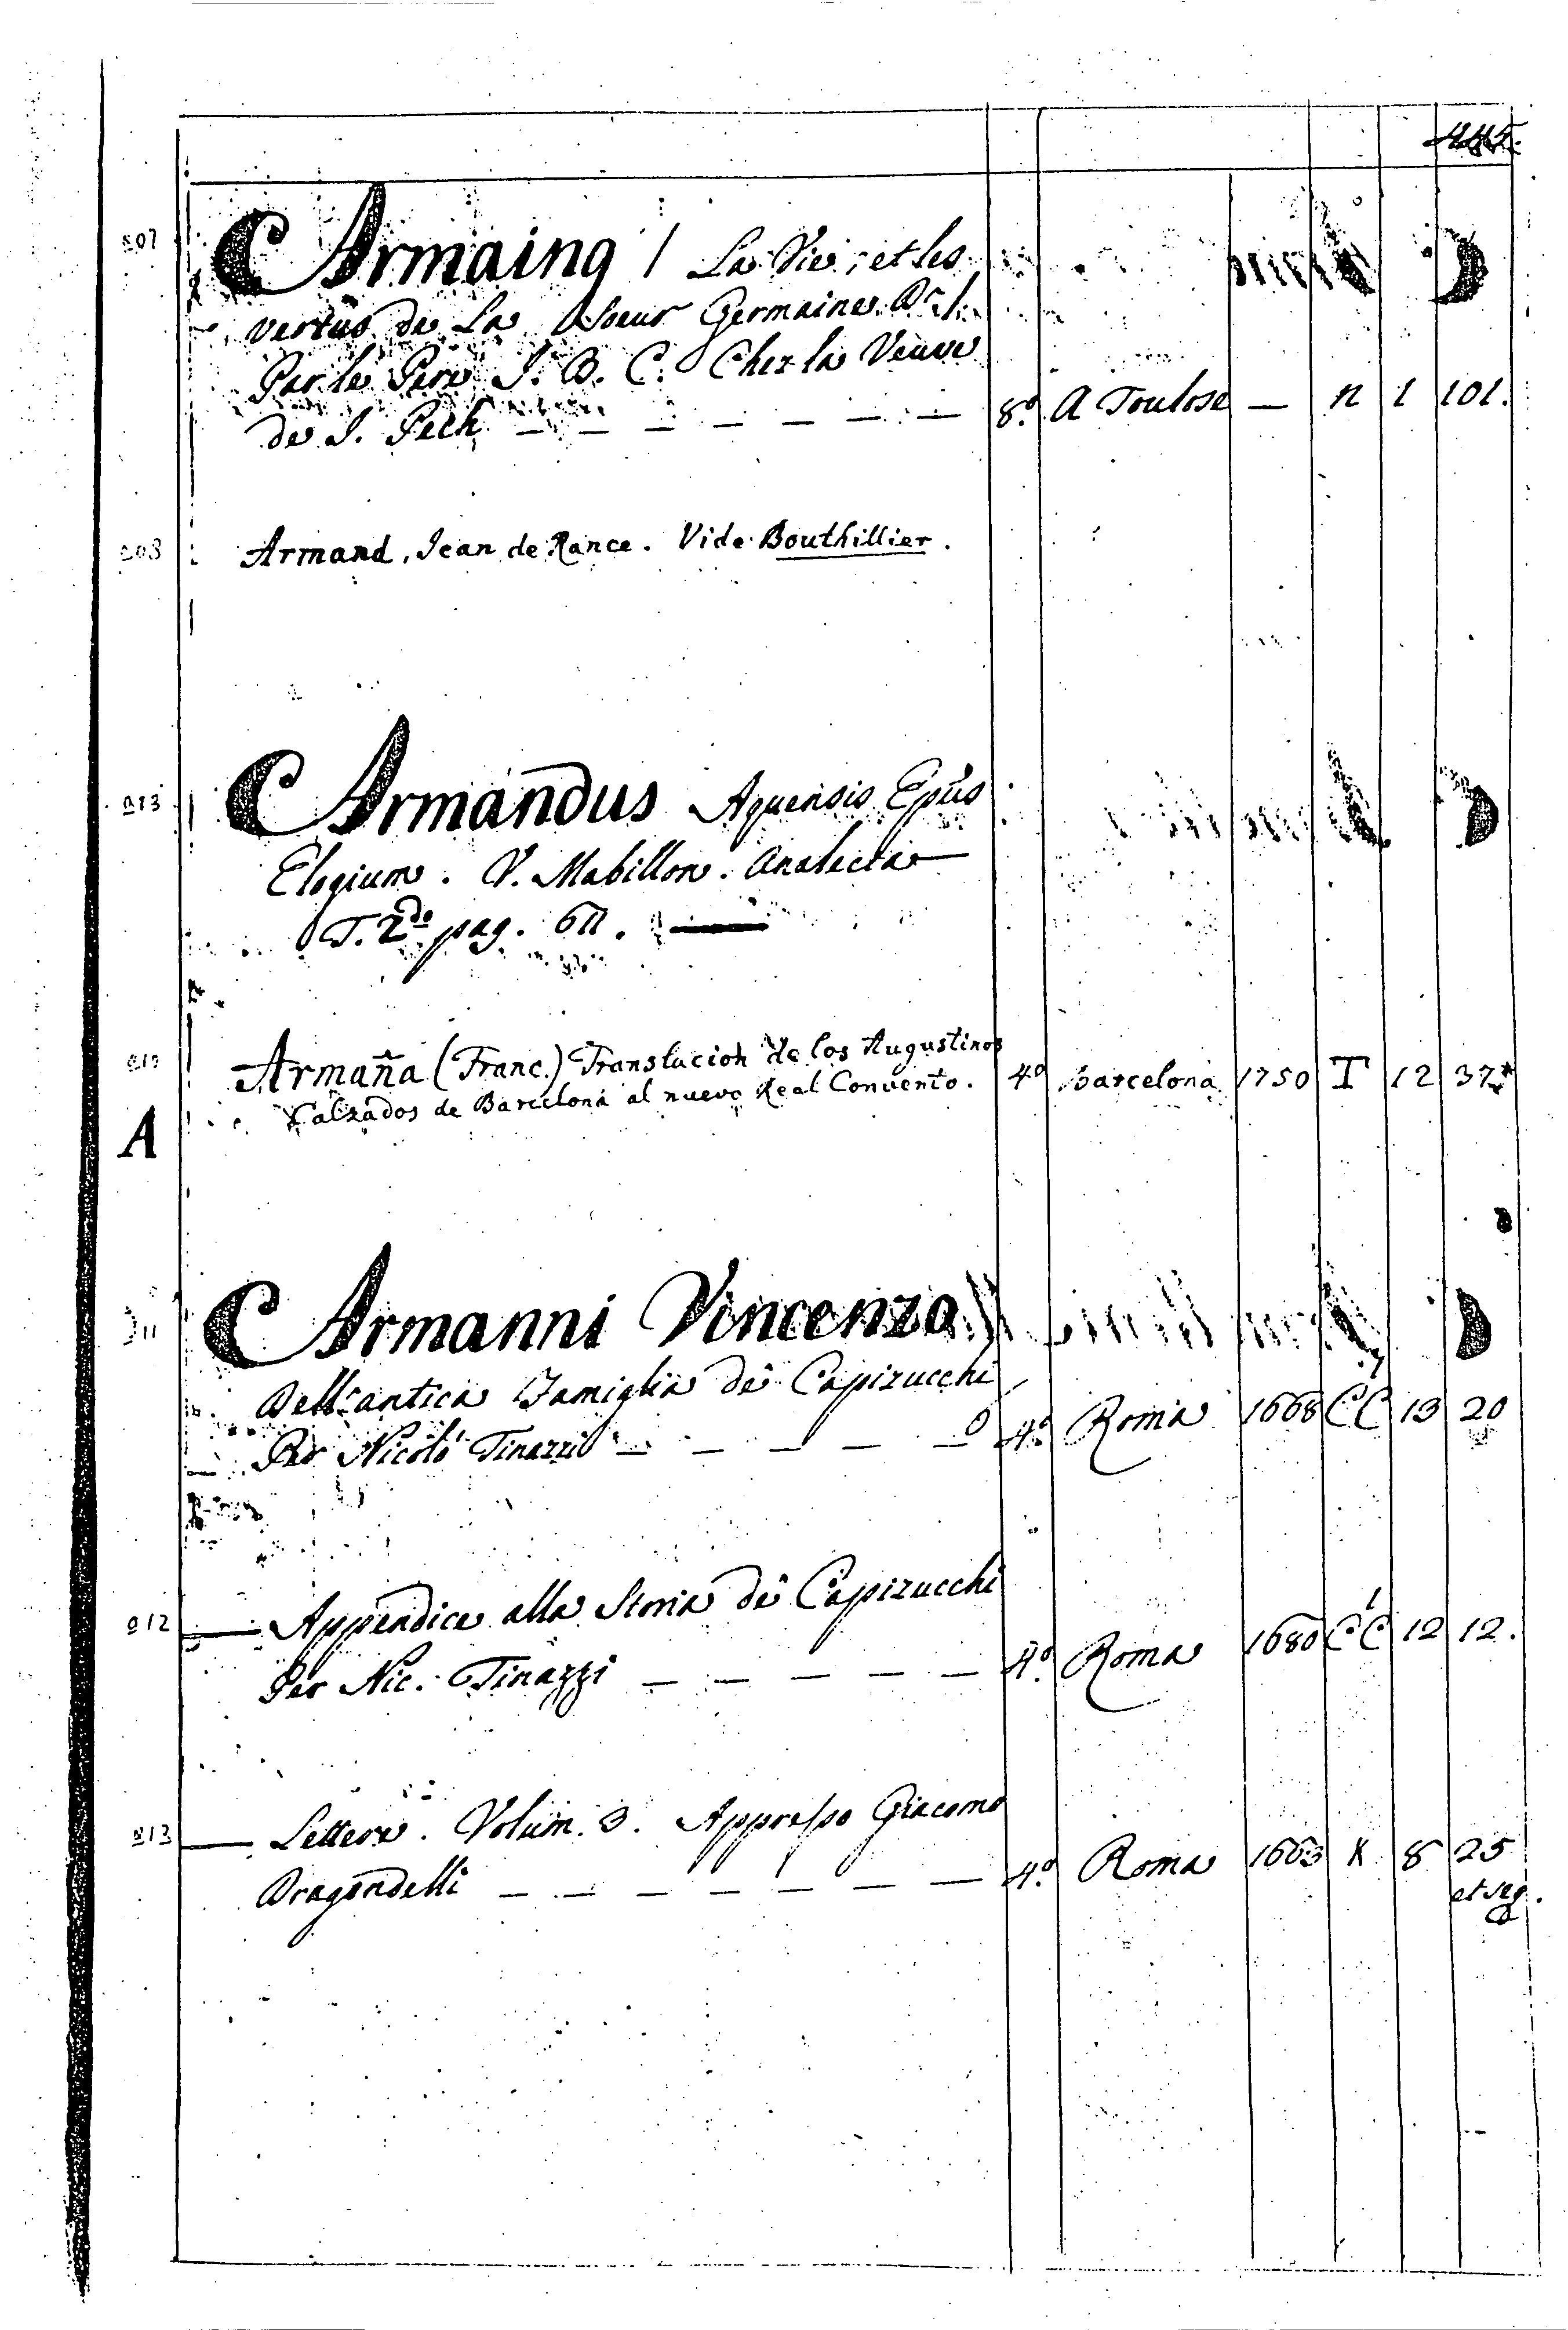 Armaing / La Vie, et les
vertus de La Soeur Germaine.
Par le Pere J. B. C. Chez la Veuve
de J. Pech — — — — — — — 8º A Toulose — n 1 101.
Armand, Jean de Rance. Vide Bouthillier.
Armandus Aquensis Epûs
Elogium. V. Mabillon. Analecta
T. 2do pag. 611. —
Armaña (Franc.) Translacion de los Augustinos 4º Barcelona 1750 T 12 37*
Calzados de Barcelona al nuevo Real Convento.
A
Armanni Vincenzo
Dell'antica Famiglia dê Capizucchi
Per Nicolò Tinazzi — — — — — 4º Roma 1668 CC 13 20
— Appendice alla Storia dê Capizucchi
Per Nic. Tinazzi — — — — — 4º Roma 1680 CC 12 12.
— Lettere. Volum. 3. Appresso Giacomo
Dragondelli — — — — — — — 4º Roma 1663 X 8 25
et seq.